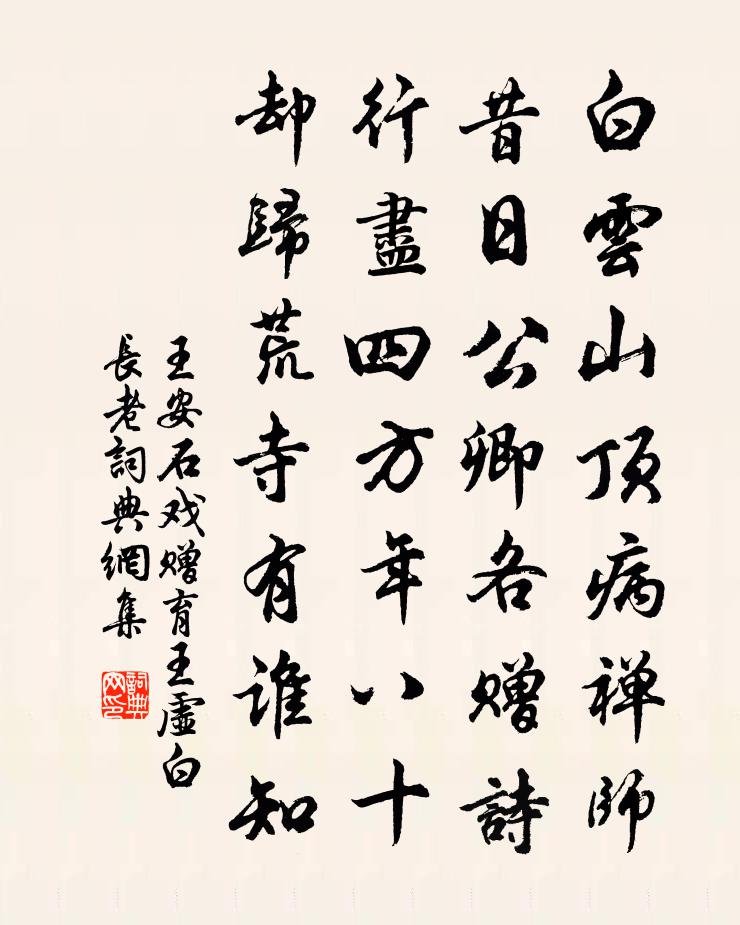 白雲山頂病禅師
昔日公卿各贈詩
行盡四方年八十
却歸荒寺有誰知
王安石戏赠育王虛白
長老詞典網集
詞典網印